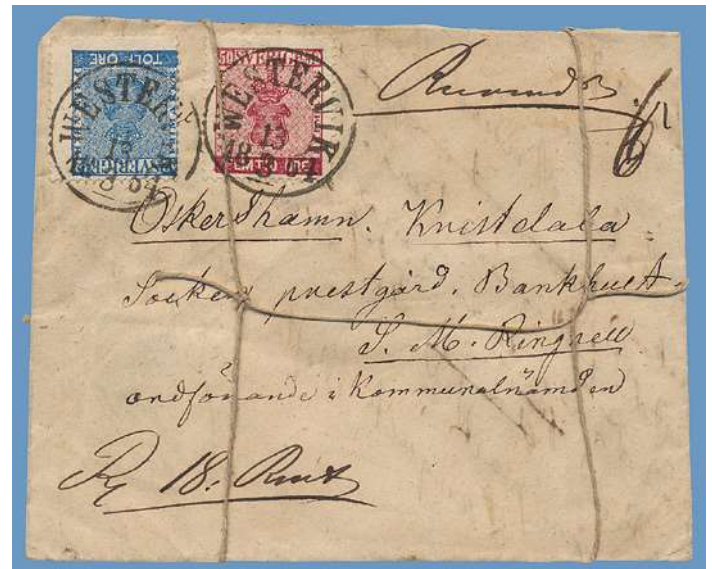 TOLF ÖRE
SVERIGE
WESTERVIK
13
18 3 64
WESTERVIK
13
18 3 64
Oskarshamn. Kristdala
Socken prestgård. Bankhult.
S. M. Ringnell
ordförande i Kommunalnämden
18: Rmt